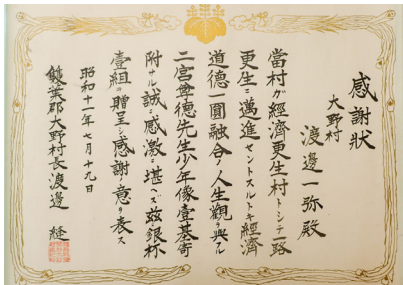 感謝狀
大野村
渡邊一弥殿
當村ガ經濟更生村トシテ一路
更生ニ邁進セントスルトキ經濟
道德一圓融合ノ人生觀ヲ與フル
二宮尊德先生少年像壹基寄
附ナル誠ニ感激ニ堪ヘズ茲銀杯
壹組ヲ贈呈シ感謝ノ意ヲ表ス
昭和十一年七月十九日
雙葉郡大野村長渡邊縫